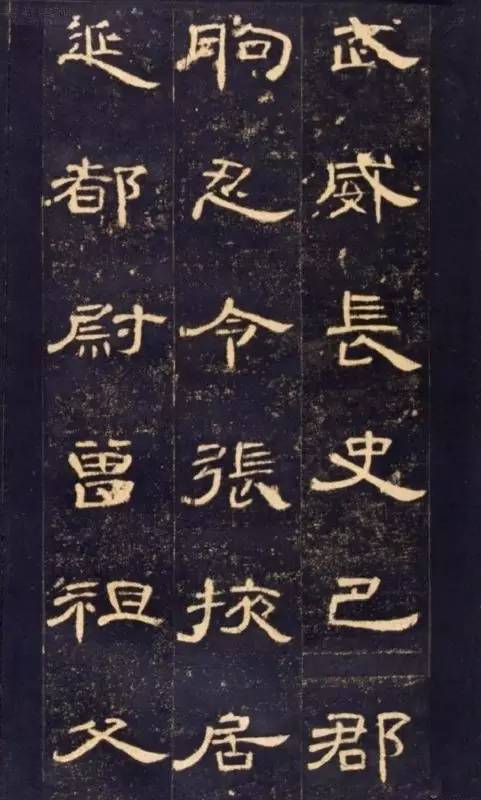 武威長史巴郡
朐忍令張掖居
延都尉曾祖父